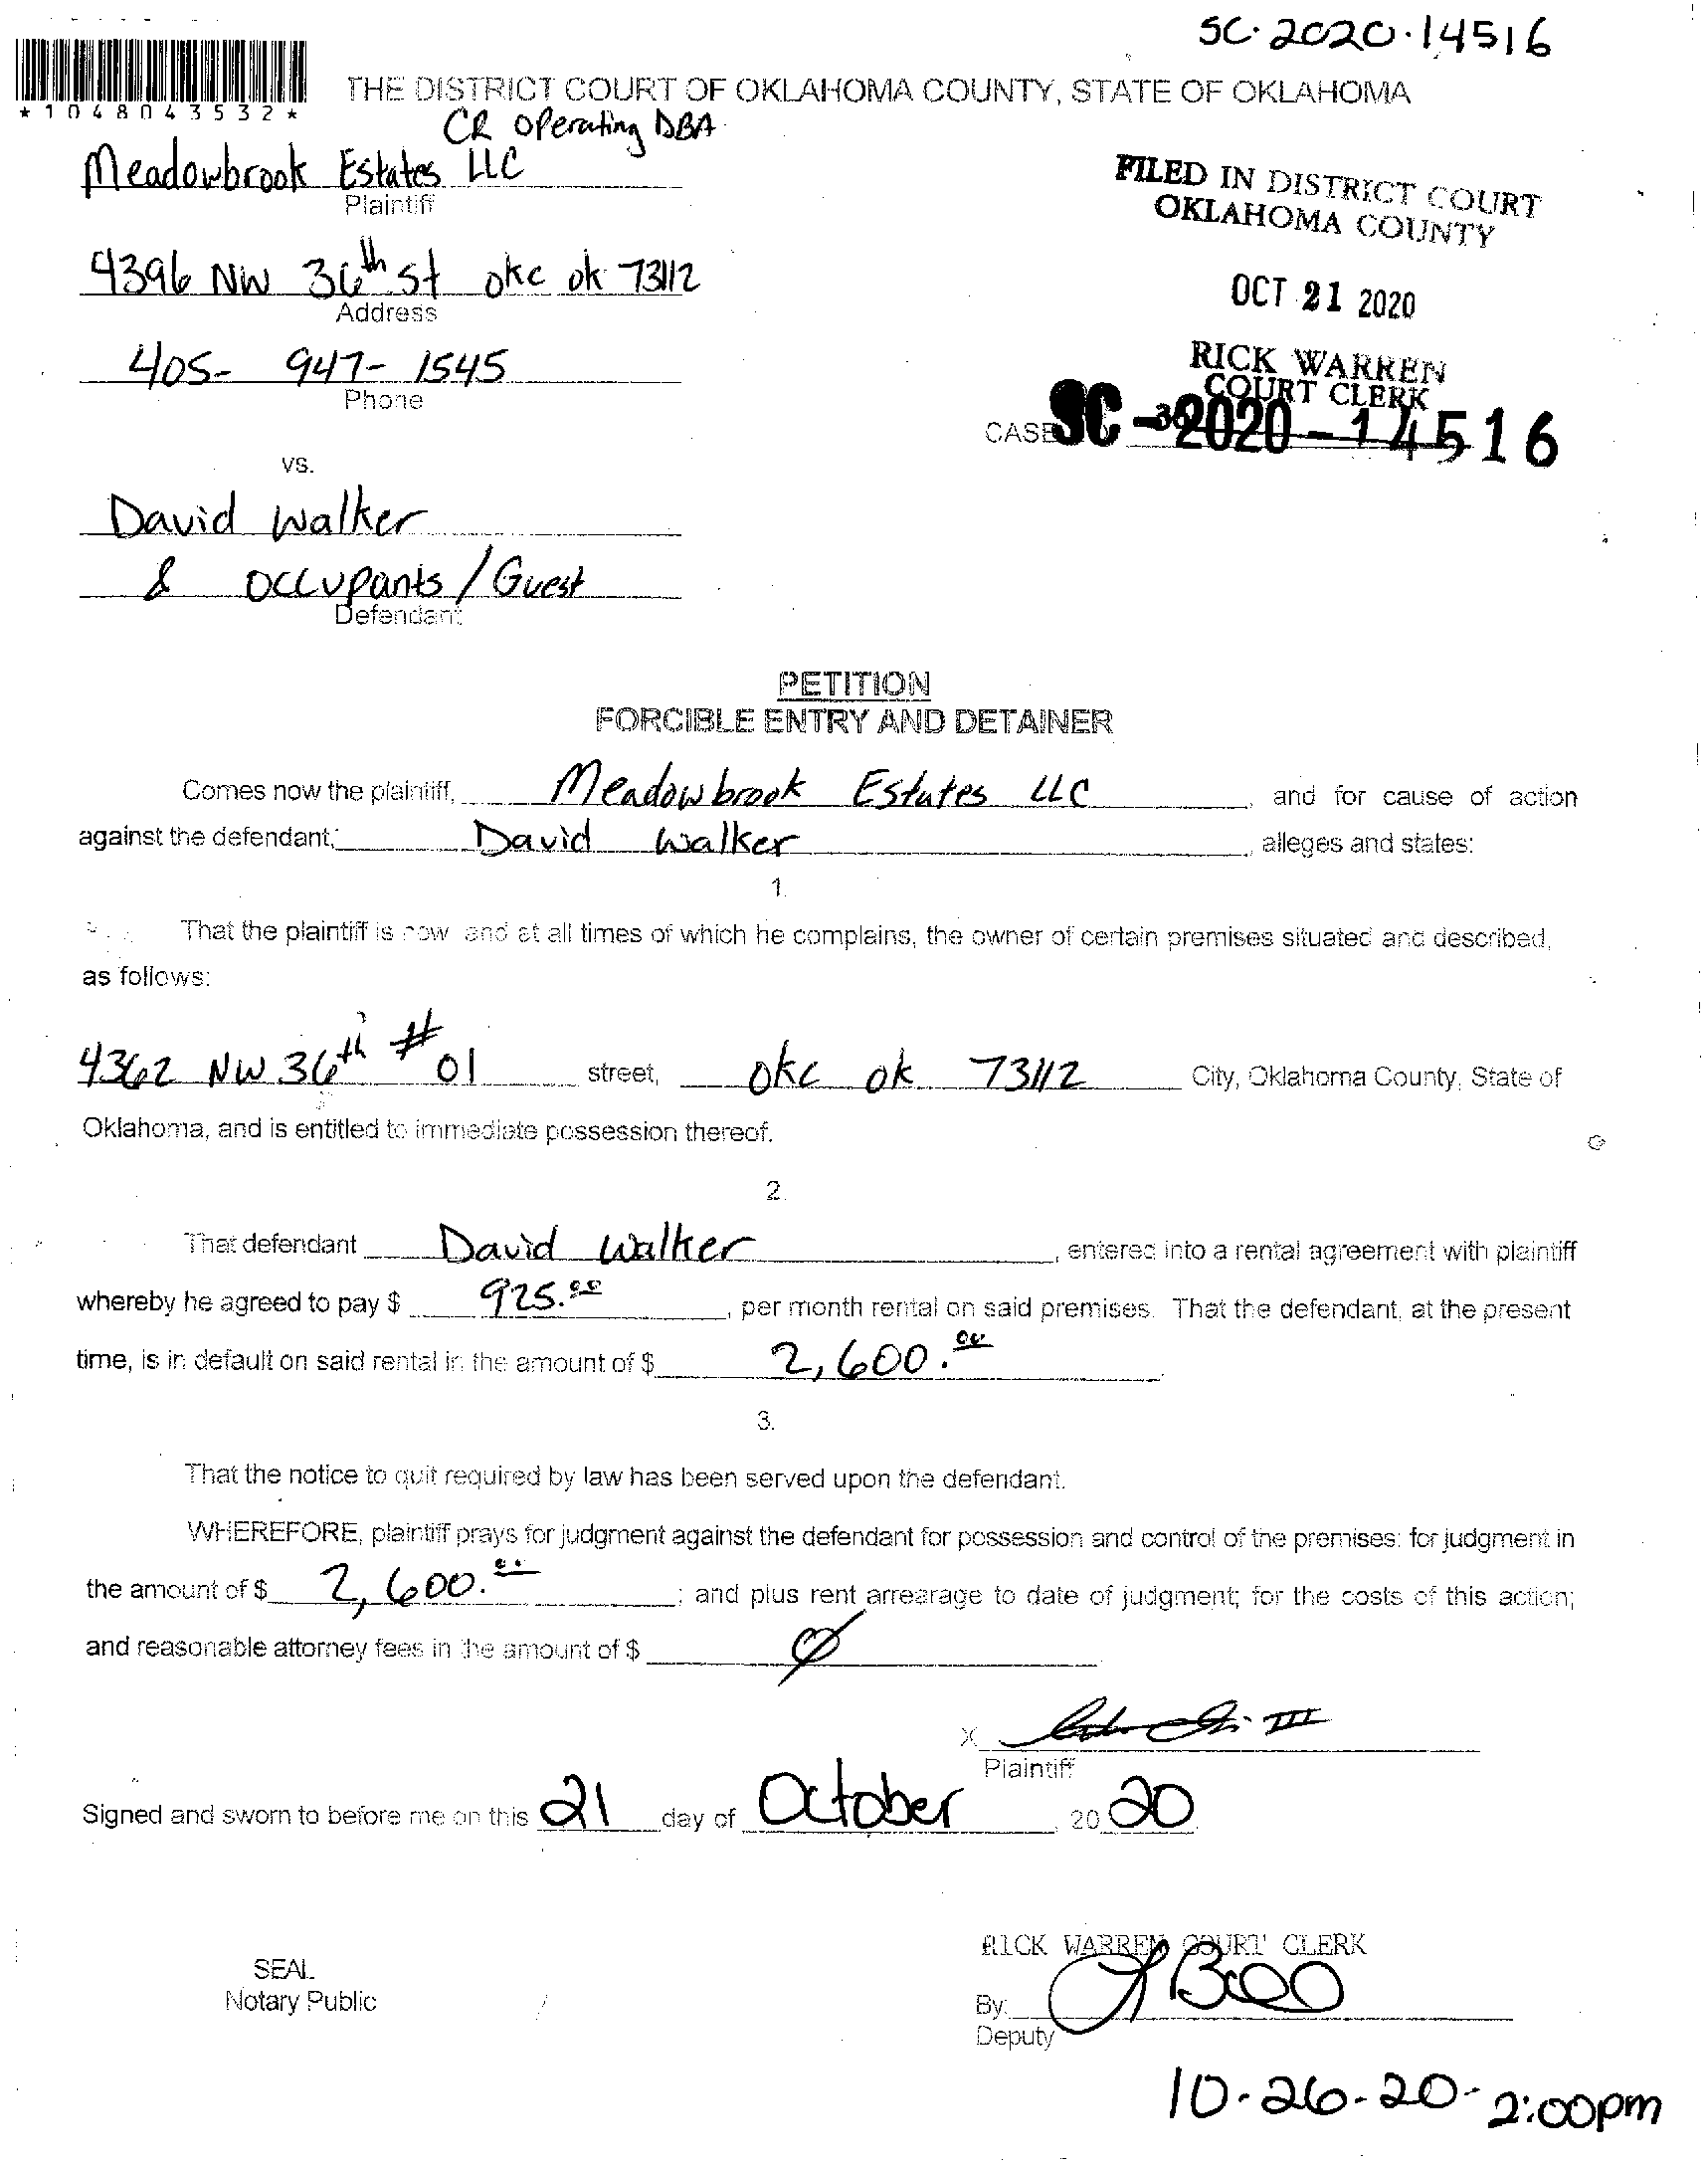 SC·2020·14516
*1048043532*
THE DISTRICT COURT OF OKLAHOMA COUNTY, STATE OF OKLAHOMA
CR Operating DBA
Meadowbrook Estates LLC
Plaintiff
FILED IN DISTRICT COURT
OKLAHOMA COUNTY
4396 NW 36th St okc ok 73112
Address
OCT 21 2020
405- 947- 1545
Phone
RICK WARREN
COURT CLERK
CASE SC-2020-14516
vs.
David Walker
& Occupants / Guest
Defendant
PETITION
FORCIBLE ENTRY AND DETAINER
Comes now the plaintiff, Meadowbrook Estates LLC, and for cause of action
against the defendant, David Walker, alleges and states:
1.
That the plaintiff is now and at all times of which he complains, the owner of certain premises situated and described,
as follows:
4362 NW 36th # 01 street, okc ok 73112 City, Oklahoma County, State of
Oklahoma, and is entitled to immediate possession thereof.
2.
That defendant David Walker, entered into a rental agreement with plaintiff
whereby he agreed to pay $ 925.00, per month rental on said premises. That the defendant, at the present
time, is in default on said rental in the amount of $ 2,600.00
3.
That the notice to quit required by law has been served upon the defendant.
WHEREFORE, plaintiff prays for judgment against the defendant for possession and control of the premises: for judgment in
the amount of $ 2,600.00; and plus rent arrearage to date of judgment; for the costs of this action;
and reasonable attorney fees in the amount of $ Ø
X III
Plaintiff
Signed and sworn to before me on this 21 day of October, 20 20
RICK WARREN COURT CLERK
SEAL
Notary Public
By:
Deputy
10-26-20- 2:00pm